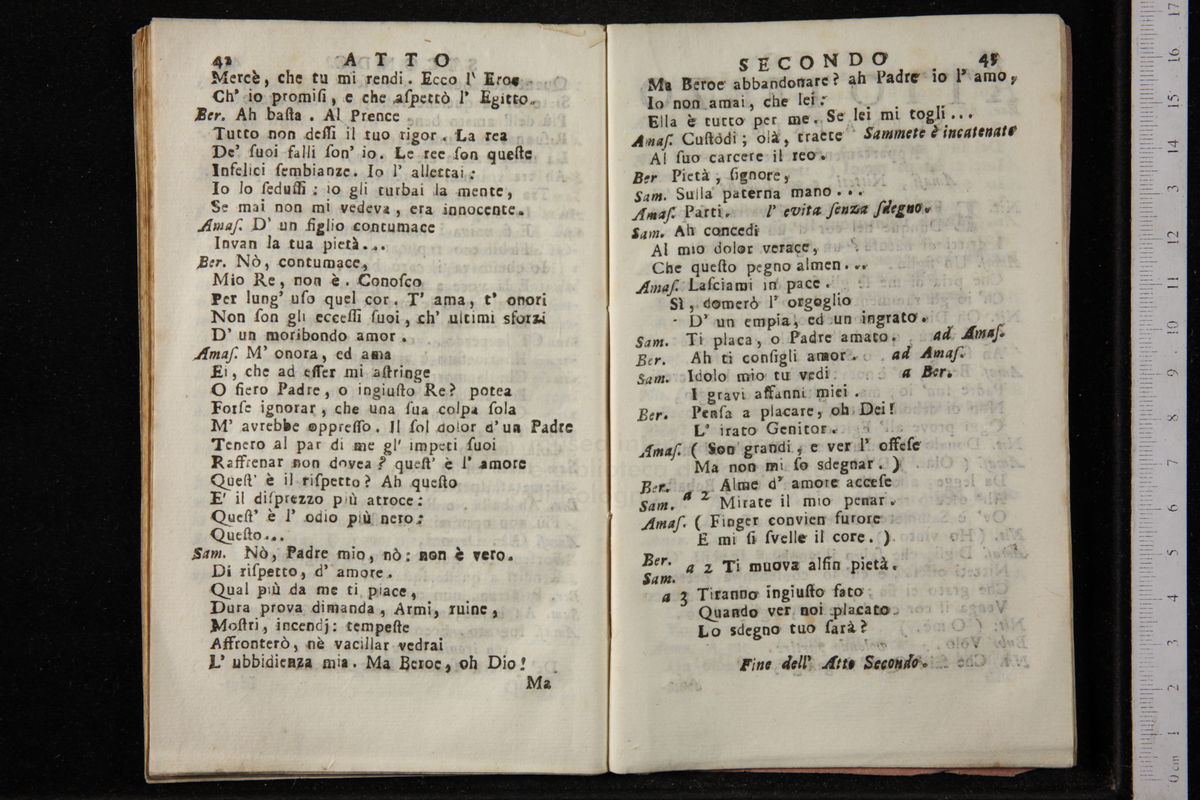 42 ATTO
Mercè, che tu mi rendi. Ecco l' Eroe
Ch' io promiſi, e che aſpettò l' Egitto.
Ber. Ah baſta. Al Prence
Tutto non deſſi il tuo rigor. La rea
De' ſuoi falli ſon' io. Le ree ſon queſte
Infelici ſembianze. Io l' allettai:
Io lo ſeduſſi: io gli turbai la mente,
Se mai non mi vedeva, era innocente.
Amaſ. D' un figlio contumace
Invan la tua pietà...
Ber. Nò, contumace,
Mio Re, non è. Conoſco
Per lung' uſo quel cor. T' ama, t' onori
Non ſon gli ecceſſi ſuoi, ch' ultimi sforzi
D' un moribondo amor.
Amaſ. M' onora, ed ama
Ei, che ad eſſer mi aſtringe
O fiero Padre, o ingiuſto Re? potea
Forſe ignorar, che una ſua colpa ſola
M' avrebbe oppreſſo. Il ſol dolor d'un Padre
Tenero al par di me gl' impeti ſuoi
Raffrenar non dovea? queſt' è l' amore
Queſt' è il riſpetto? Ah queſto
E' il diſprezzo più atroce:
Queſt' è l' odio più nero:
Queſto...
Sam. Nò, Padre mio, nò: non è vero.
Di riſpetto, d' amore.
Qual più da me ti piace,
Dura prova dimanda, Armi, ruine,
Moſtri, incendj: tempeſte
Affronterò, nè vacillar vedrai
L' ubbidienza mia. Ma Beroe, oh Dio!
Ma
SECONDO 43
Ma Beroe abbandonare? ah Padre io l' amo,
Io non amai, che lei:
Ella è tutto per me. Se lei mi togli...
Amaſ. Cuſtodi; olà, traete Sammete è incatenato
Al ſuo carcere il reo.
Ber Pietà, ſignore,
Sam. Sulla paterna mano...
Amaſ. Parti. l' evita ſenza ſdegno.
Sam. Ah concedi
Al mio dolor verace,
Che queſto pegno almen...
Amaſ. Laſciami in pace.
Sì, domerò l' orgoglio
D' un empia, ed un ingrato.
Sam. Ti placa, o Padre amato. ad Amaſ.
Ber. Ah ti conſigli amor. ad Amaſ.
Sam. Idolo mio tu vedi a Ber.
I gravi affanni miei.
Ber. Penſa a placare, oh Dei!
L' irato Genitor.
Amaſ. ( Son grandi, e ver l' offeſe
Ma non mi ſo sdegnar. )
Ber. Alme d' amore acceſe
Sam. a 2 Mirate il mio penar.
Amaſ. ( Finger convien furore
E mi ſi ſvelle il core. )
Ber. a 2 Ti muova alfin pietà.
Sam.
a 3 Tiranno ingiuſto fato
Quando ver noi placato
Lo sdegno tuo ſarà?
Fine dell' Atto Secondo.